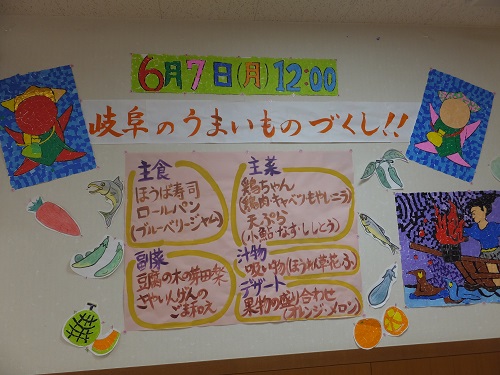 6月7日(月)12:00
岐阜のうまいものづくし!!
主食
ほうば寿司
ロールパン
(ブルーベリージャム)
副菜
豆腐の木の芽田楽
さやいんげんの
ごま和え
主菜
鶏ちゃん
(鶏肉・キャベツ・もやし・ニラ)
天ぷら
(小鮎・なす・ししとう)
汁物
吸い物(ほうれん草・花ふ)
デザート
果物の盛り合わせ
(オレンジ・メロン)